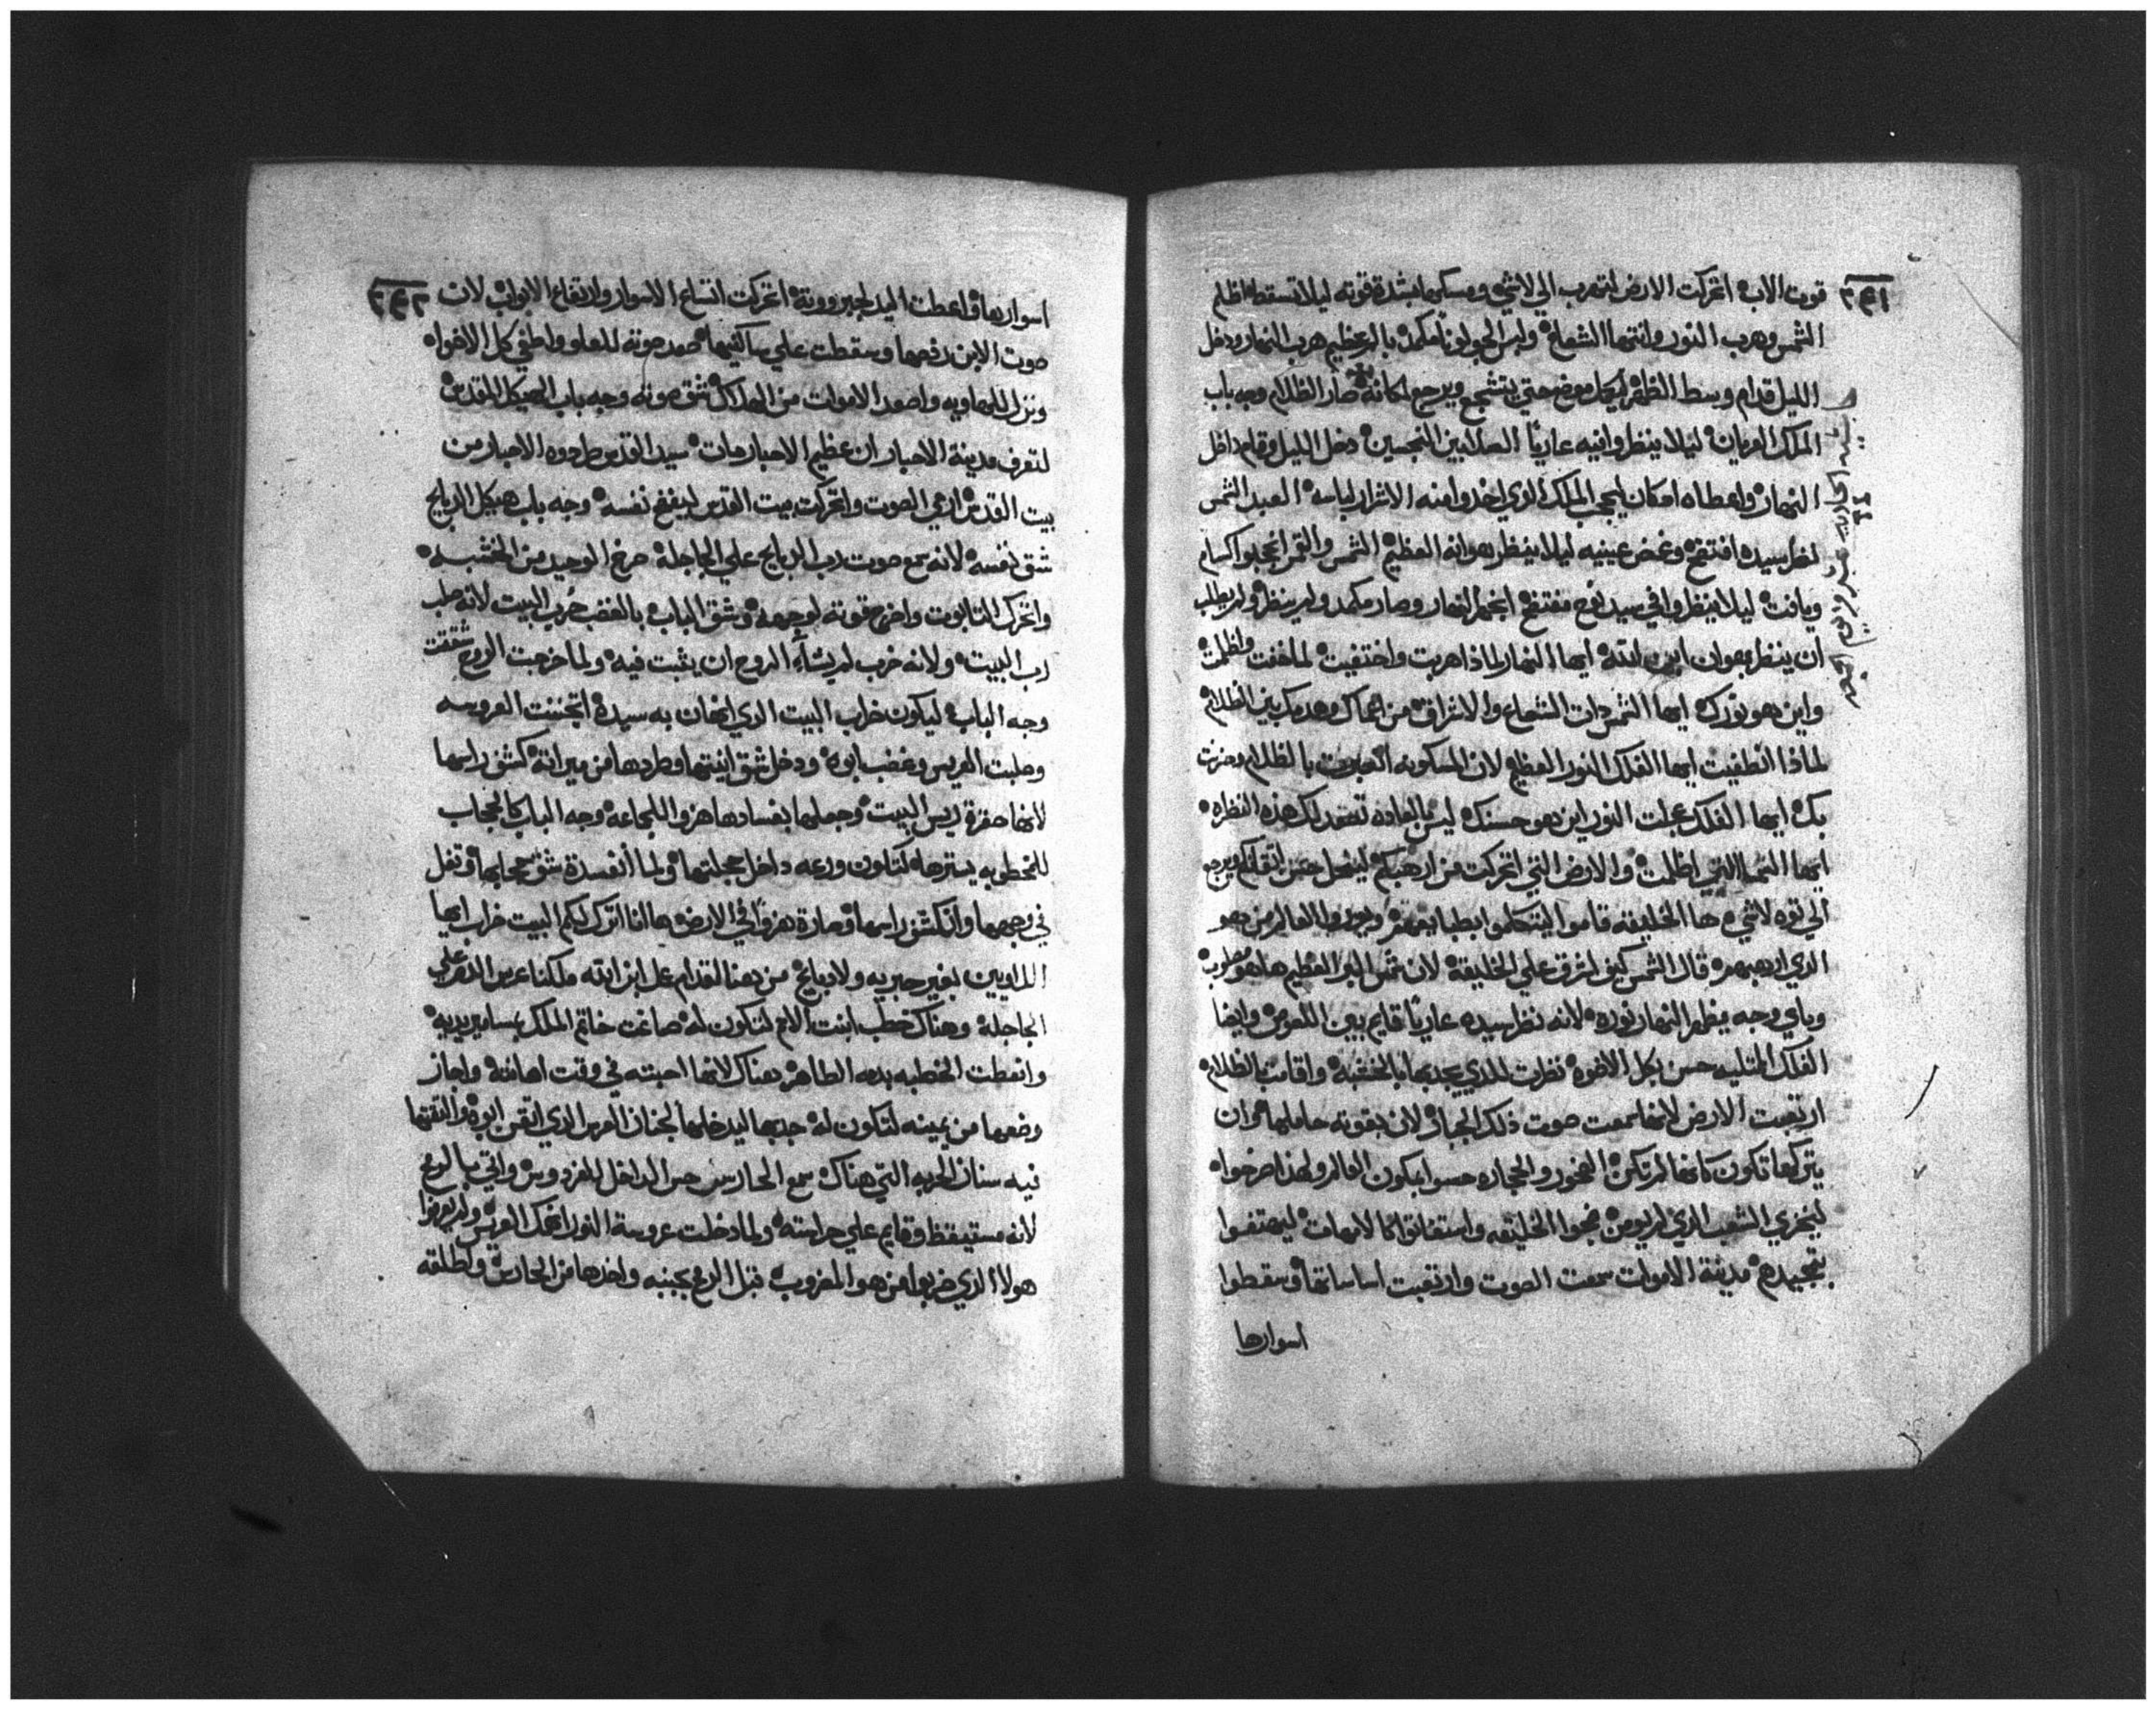 قوت الاب اتحركت الارض لتهرب الي لاشي ومسكها بشدة قوته ليلا تسقط اظلم
الشمس وهرب النور وانتها الشعاع ولبس الجو لونا مكمد بالرعظيم هرب النهار ودخل
الليل قدام وسط الظهر موضع حتي يتشجع ويرجع لمكانه صار الظلام وجه باب
الملك العريان ليلا ينظروا فيه عاريا الصالبين النجسين دخل الليل وقام داخل
النهار واعطاه امكان ليحجب الملك الذي اخدوا منه الاشرار لباسه العبد الشمس
نظر سيده افتضح وغمض عينيه ليلا ينظر هوانه العظيم الشمس والقمر اكسام
ويافت ليلا ينظروا في سيد نوح مفتضح النهار وصار مكمد ولم ينظر ولم يطلب
ان ينظر هوان ابن الله ايها النهار لماذا هربت واختفيت لماخفت واظلمت
واين هو نورك ايها الشمس ذات الشعاع والاشراق من اعماك وهدمك بين الظلام
لماذا انطفيت ايها الفلك النور العظيم لان المسكونه بالظلام وحزنت
بك ايها الفلك عجلت النور اين هو حسنك ليس بالعاده تصمد لك هذه النظره
ايها السما التي اظلمت والارض التي اتحركت من ارهبكم ليفعل حسن اتقانكم ويرجع
الي توه لاشي ها الخليقه قاموا ليتكلموا بطبايعهم العالم من هو
الذي ارهبهم قال الشمس كيف اشرق علي الخليقه لان شمس البر العظيم ها هو مصلوب
وباي وجه يظهر النهار نوره لانه نظر سيده عاريا قايم بين اللصوص وايضا
الفلك المتليه حسن بكل الاضوه نظرت للذي يجدبها بالخشبه واقامت بالظلام
ارتعبت الارض لانها سمعت صوت ذلك الجبار لان بقوته حاملها وان
يتركها تكون كانها لم تكن الصخور والحجاره حسوا بكون العالم ولهذا صرخوا
ليخزي الشعب الذي لم يومن ضجوا الخليقه واستغاتوا كالامهات ليهتفوا
بتجيده مدينة الاموات سمعت الصوت وارتعبت اساساتها وسقطوا
اسوارها
اسوارها واعطت اليد لجبرووته اتحركت اتساع الاسوار وارتفاع الابواب لان
صوت الابن دفعها وسقطت علي ساكنيها صعد صوته للعلو ولطفي كل الاضواه
ونزل للهاويه واصعد الاموات من الهلاك شق صوته وجه باب الهيكل المقدس
لتعرف مدينة الاحبار ان عظيم الاحبار مات سيد القدس طردوه الاحبار من
بيت القدس الصوت واتحركت بيت القدس ليفضح نفسه وجه باب هيكل الدبايح
شق نفسه لانه سمع صوت رب الدبايح علي الجاجلة صرخ الوحيد من الخشبه
واتحرك التابوت واخرج قوته لوجهه وشق الباب بالغضب خرب البيت لانه صلب
رب البيت ولانه خرب لم يشاء الروح ان يثبت فيه ولما خرجت الروح شققت
وجه الباب ليكون خراب البيت الذي اتهان به سيده اتجننت العروسه
وصلبت العريس وغضب ابوه ودخل شق ايضتها وطردها من ميراته كشف راسها
لانها حقرة ريس البيت وجعلها بفسادها هزوا للجماعه وجه الباب كالحجاب
للمخطوبه يسترها لتكون ورعه داخل حجلتها ولما انفسدة شق حجابها وتفل
في وجهها وانكشف راسها وصارة هزوا في الارض ها انا اترك لكم البيت خراب ايها
اللاويين بغير حبريه ولا دبايح من هنا لقدام عل ابن الله ملكنا عرس الدهر علي
الجاجلة وهناك خطب ابنت الامم لتكون له صاغت خاتم الملك بمسامير يديه
وانعطت الخطبه بدمه الطاهر هناك لانها احبته في وقت اهانته واجاز
وضعها من يمينه لتكون له جدبها ليدخلها لجنان العرس الذي اتقن ابوه والتقتها
فيه سنان الحربه التي هناك سمع الحارس حس الداخل للفردوس واتي بالرمح
لانه مستيقظ وقايم علي حراسته ولما دخلت عروسة النور اتهك العريس ولم يعرفوا
هولا الذي ضربوا من هو المضروب قبل الرمح بجنبه واخدها من الحارس واطلقه